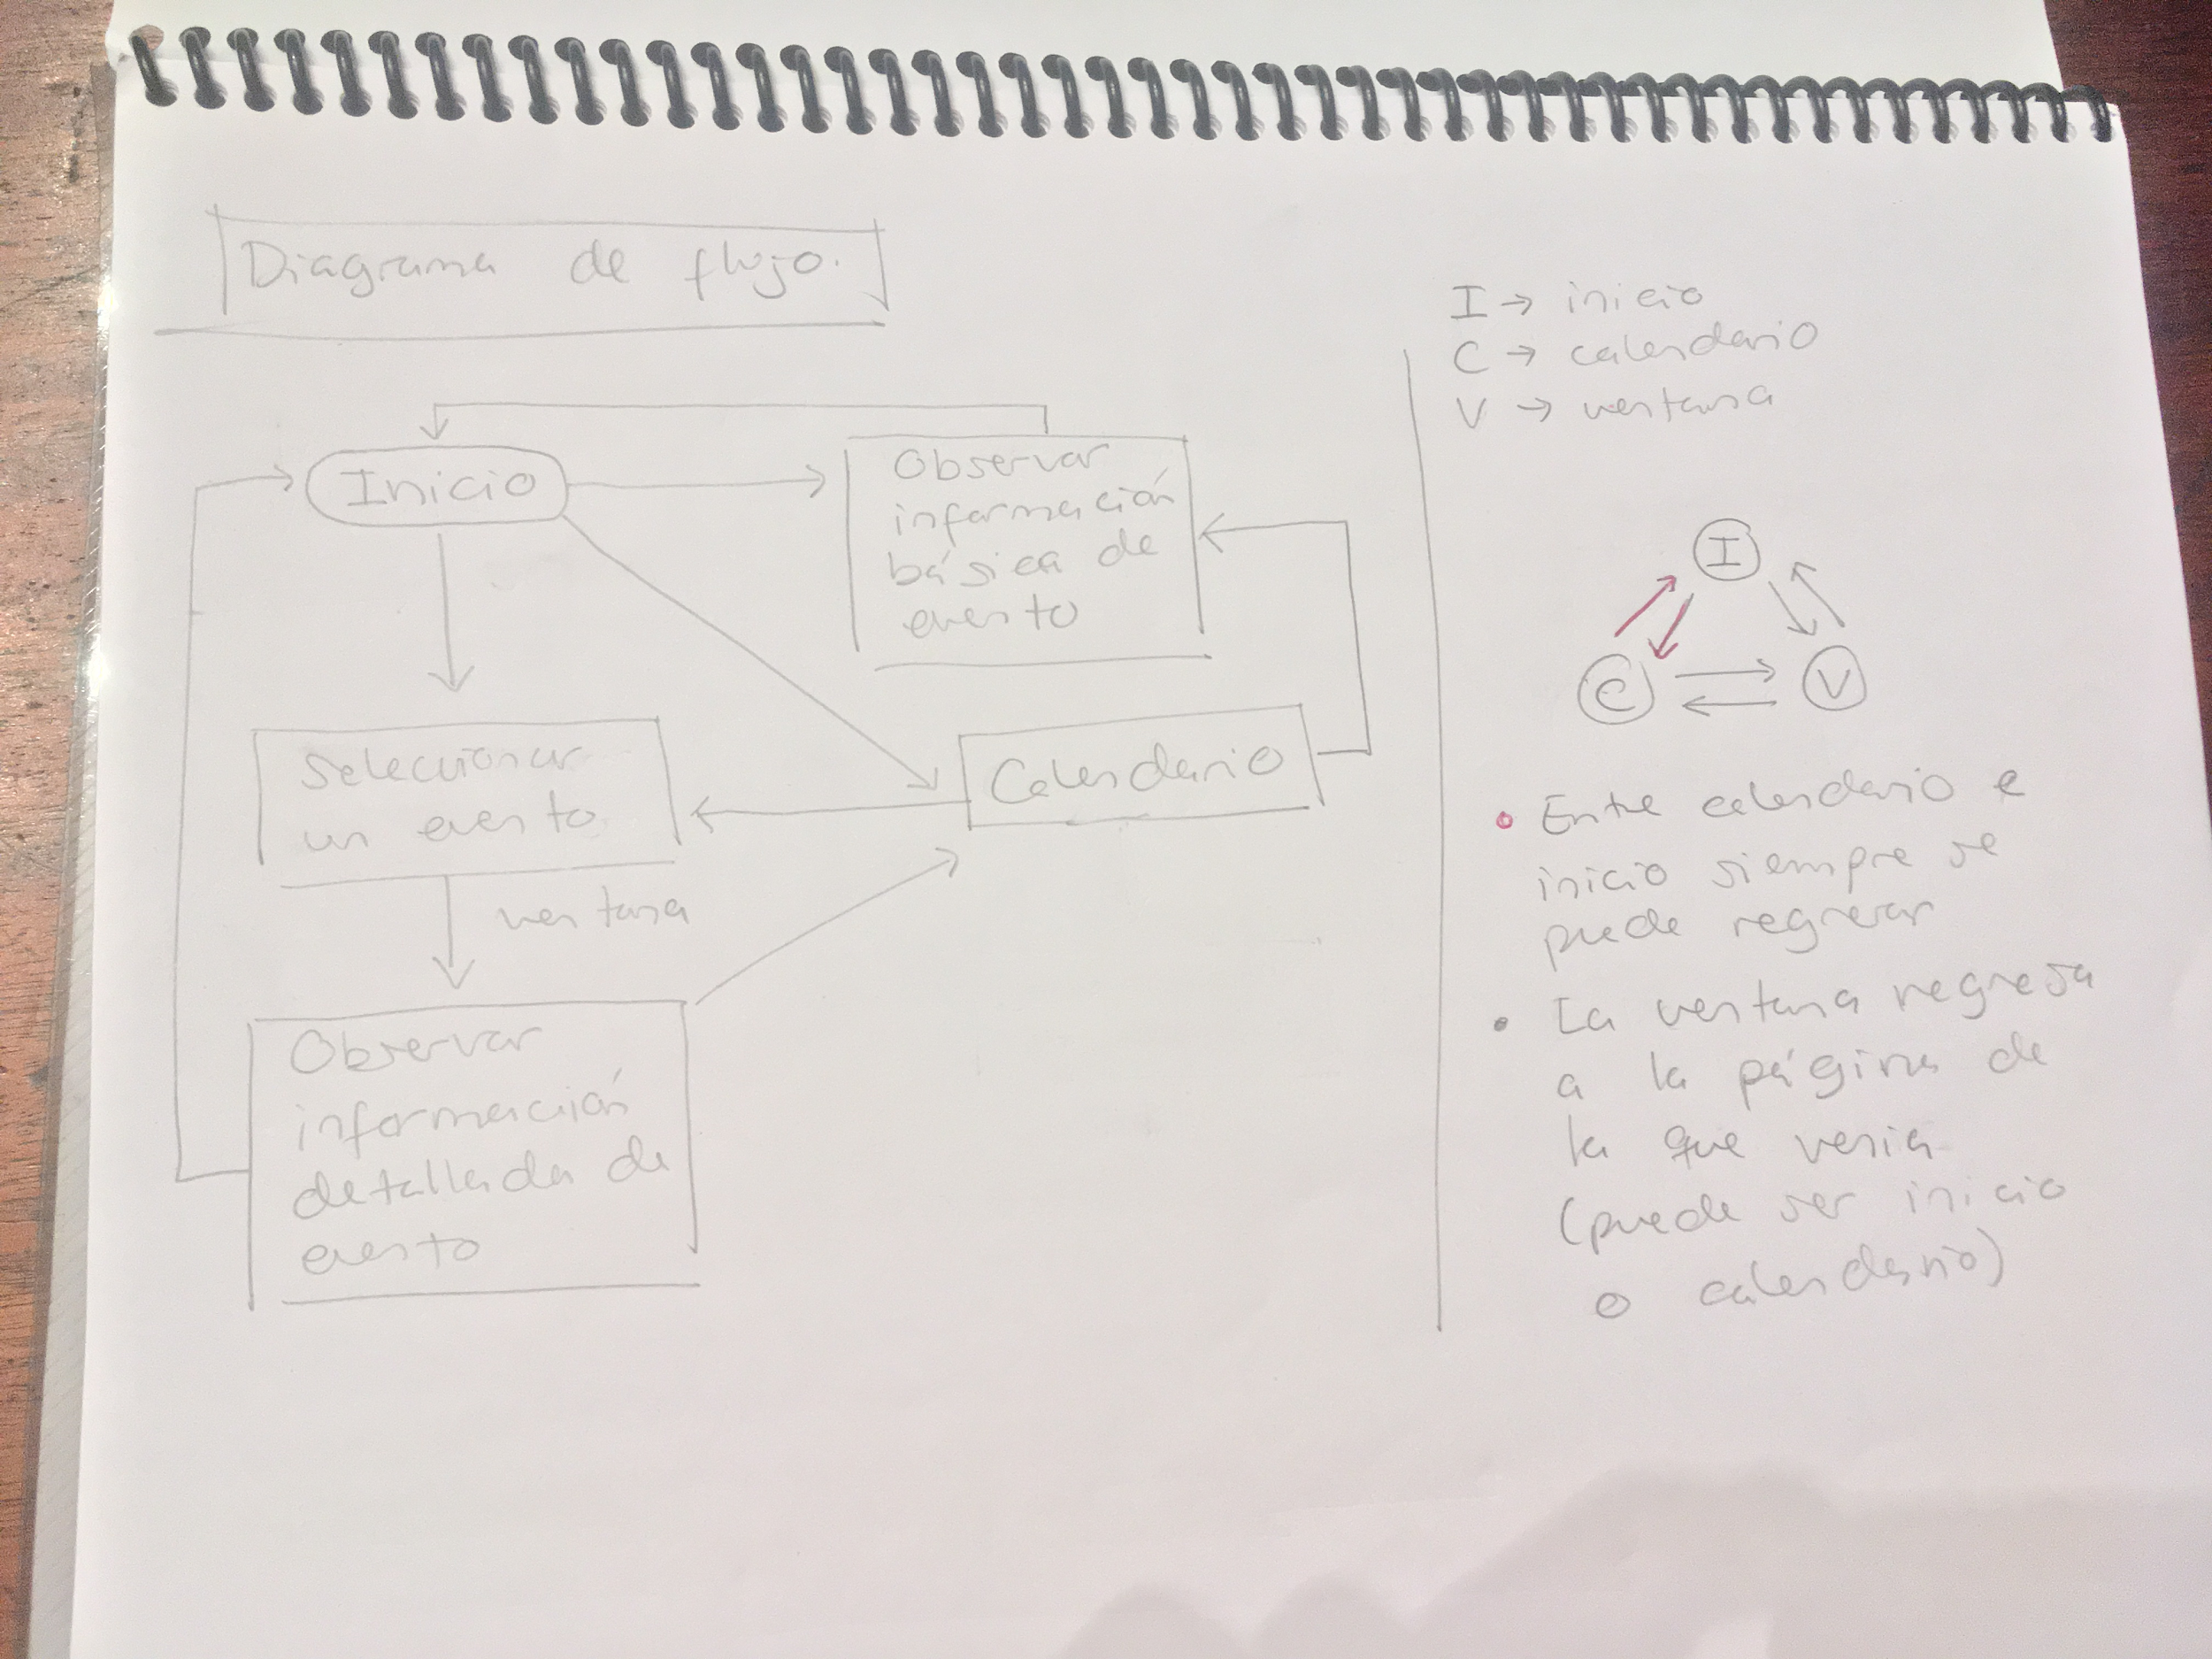 Diagrama de flujo.
Inicio
Observar
información
básica de
evento
Seleccionar
un evento
Calendario
ventana
Observar
información
detallada de
evento
I → inicio
C → calendario
V → ventana
I
C
V
• Entre calendario e
inicio siempre se
puede regresar
• La ventana regresa
a la página de
la que venia
(puede ser inicio
o calendario)